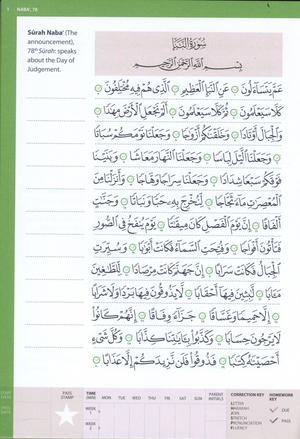 1 NABA', 78
Sūrah Naba' (The
announcement),
78th Sūrah: speaks
about the Day of
Judgement.
سُورَةُ النَّبَإِ
بِسْمِ اللَّهِ الرَّحْمَٰنِ الرَّحِيمِ
عَمَّ يَتَسَاءَلُونَ ۝ عَنِ النَّبَإِ الْعَظِيمِ ۝ الَّذِي هُمْ فِيهِ مُخْتَلِفُونَ ۝
كَلَّا سَيَعْلَمُونَ ۝ ثُمَّ كَلَّا سَيَعْلَمُونَ ۝ أَلَمْ نَجْعَلِ الْأَرْضَ مِهَادًا ۝
وَالْجِبَالَ أَوْتَادًا ۝ وَخَلَقْنَاكُمْ أَزْوَاجًا ۝ وَجَعَلْنَا نَوْمَكُمْ سُبَاتًا
۝ وَجَعَلْنَا اللَّيْلَ لِبَاسًا ۝ وَجَعَلْنَا النَّهَارَ مَعَاشًا ۝ وَبَنَيْنَا
فَوْقَكُمْ سَبْعًا شِدَادًا ۝ وَجَعَلْنَا سِرَاجًا وَهَّاجًا ۝ وَأَنزَلْنَا مِنَ
الْمُعْصِرَاتِ مَاءً ثَجَّاجًا ۝ لِّنُخْرِجَ بِهِ حَبًّا وَنَبَاتًا ۝ وَجَنَّاتٍ
أَلْفَافًا ۝ إِنَّ يَوْمَ الْفَصْلِ كَانَ مِيقَاتًا ۝ يَوْمَ يُنفَخُ فِي الصُّورِ
فَتَأْتُونَ أَفْوَاجًا ۝ وَفُتِحَتِ السَّمَاءُ فَكَانَتْ أَبْوَابًا ۝ وَسُيِّرَتِ
الْجِبَالُ فَكَانَتْ سَرَابًا ۝ إِنَّ جَهَنَّمَ كَانَتْ مِرْصَادًا ۝ لِّلطَّاغِينَ
مَآبًا ۝ لَّابِثِينَ فِيهَا أَحْقَابًا ۝ لَّا يَذُوقُونَ فِيهَا بَرْدًا وَلَا شَرَابًا
۝ إِلَّا حَمِيمًا وَغَسَّاقًا ۝ جَزَاءً وِفَاقًا ۝ إِنَّهُمْ كَانُوا
لَا يَرْجُونَ حِسَابًا ۝ وَكَذَّبُوا بِآيَاتِنَا كِذَّابًا ۝ وَكُلَّ شَيْءٍ
أَحْصَيْنَاهُ كِتَابًا ۝ فَذُوقُوا فَلَن نَّزِيدَكُمْ إِلَّا عَذَابًا ۝
START DATE
PASS STAMP
TIME (MIN) MON TUE WED THU FRI SAT SUN PARENT INITIALS
WEEK 1
WEEK 2
CORRECTION KEY
LETTER
HARAKAH
JOIN
STRETCH
PRONUNCIATION
FLUENCY
HOMEWORK KEY
DUE
PASS